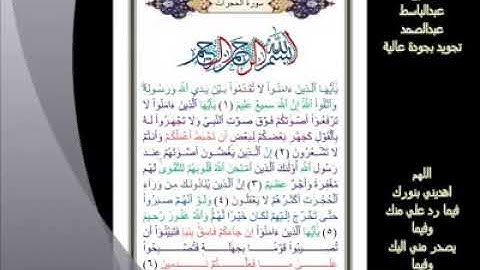 سورة الحجرات
بسم الله الرحمن الرحيم
يَٰٓأَيُّهَا ٱلَّذِينَ ءَامَنُوا۟ لَا تُقَدِّمُوا۟ بَيْنَ يَدَىِ ٱللَّهِ وَرَسُولِهِۦ
وَٱتَّقُوا۟ ٱللَّهَ إِنَّ ٱللَّهَ سَمِيعٌ عَلِيمٌ (١) يَٰٓأَيُّهَا ٱلَّذِينَ ءَامَنُوا۟ لَا
تَرْفَعُوٓا۟ أَصْوَٰتَكُمْ فَوْقَ صَوْتِ ٱلنَّبِىِّ وَلَا تَجْهَرُوا۟ لَهُۥ
بِٱلْقَوْلِ كَجَهْرِ بَعْضِكُمْ لِبَعْضٍ أَن تَحْبَطَ أَعْمَٰلُكُمْ وَأَنتُمْ
لَا تَشْعُرُونَ (٢) إِنَّ ٱلَّذِينَ يَغُضُّونَ أَصْوَٰتَهُمْ عِندَ
رَسُولِ ٱللَّهِ أُو۟لَٰٓئِكَ ٱلَّذِينَ ٱمْتَحَنَ ٱللَّهُ قُلُوبَهُمْ لِلتَّقْوَىٰ لَهُم
مَّغْفِرَةٌ وَأَجْرٌ عَظِيمٌ (٣) إِنَّ ٱلَّذِينَ يُنَادُونَكَ مِن وَرَآءِ
ٱلْحُجُرَٰتِ أَكْثَرُهُمْ لَا يَعْقِلُونَ (٤) وَلَوْ أَنَّهُمْ صَبَرُوا۟
حَتَّىٰ تَخْرُجَ إِلَيْهِمْ لَكَانَ خَيْرًا لَّهُمْ وَٱللَّهُ غَفُورٌ رَّحِيمٌ
(٥) يَٰٓأَيُّهَا ٱلَّذِينَ ءَامَنُوٓا۟ إِن جَآءَكُمْ فَاسِقٌۢ بِنَبَإٍ فَتَبَيَّنُوٓا۟ أَن
تُصِيبُوا۟ قَوْمًۢا بِجَهَٰلَةٍ فَتُصْبِحُوا۟
عَلَىٰ مَا فَعَلْتُمْ نَٰدِمِينَ (٦)
عبدالباسط
عبدالصمد
تجويد بجودة عالية
اللهم
اهديني بنورك
فيما رد علي منك
وفيما
يصدر مني اليك
وفيما